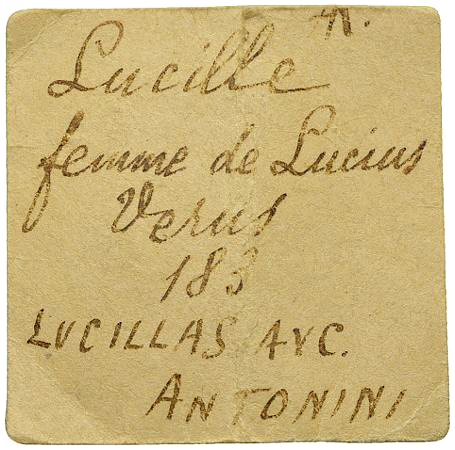 Lucille
femme de Lucius
Verus
183
LUCILLAS AVC.
ANTONINI